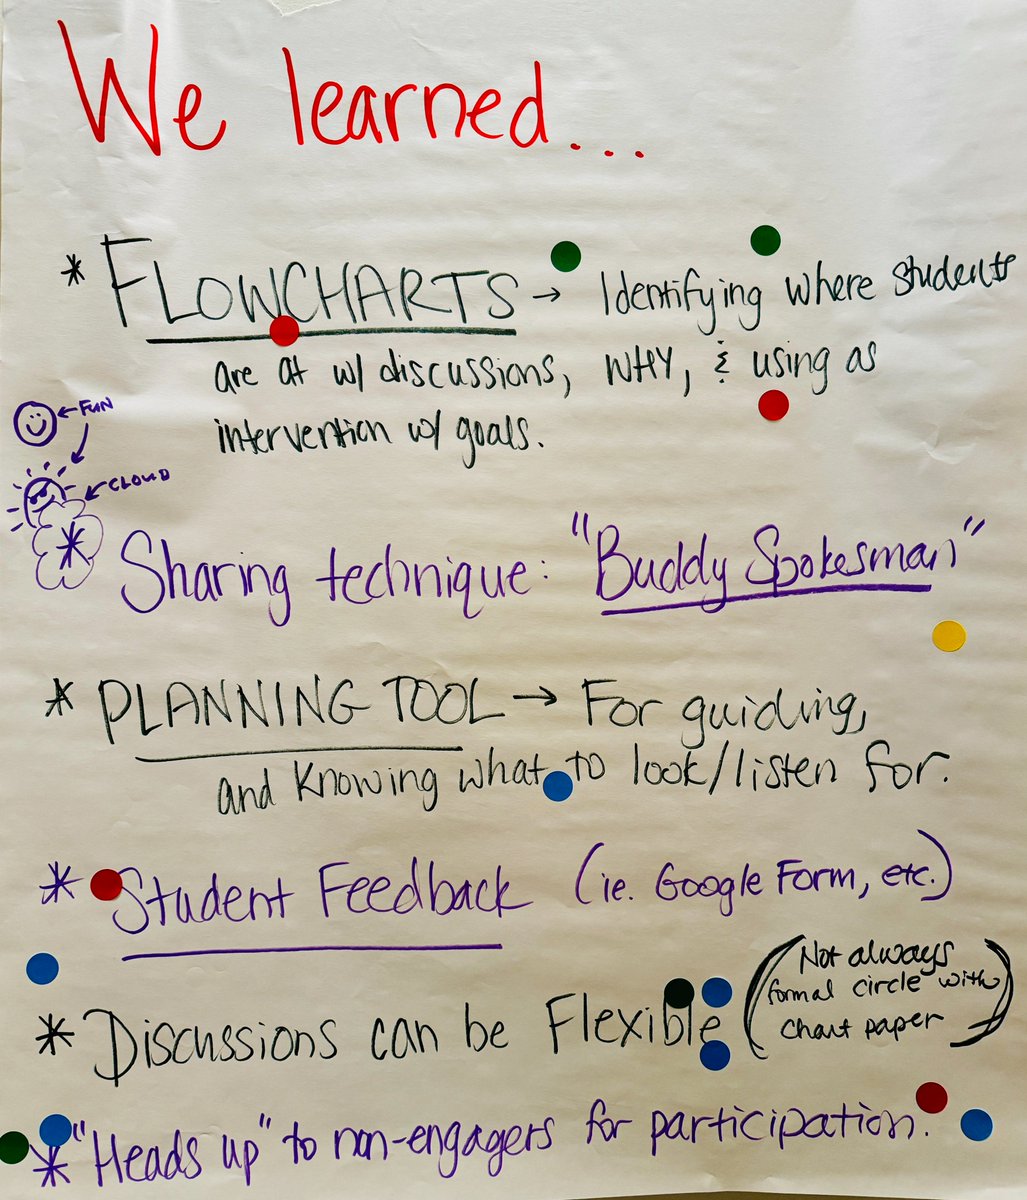 We learned...
* FLOWCHARTS → Identifying where students
are at w/ discussions, WHY, & using as
intervention w/ goals.
← FUN
← CLOUD
* Sharing technique: "Buddy Spokesman"
* PLANNING TOOL → For guiding,
and knowing what to look/listen for.
* Student Feedback (ie. Google Form, etc.)
* Discussions can be Flexible (Not always
formal circle with
chart paper)
* "Heads up" to non-engagers for participation.